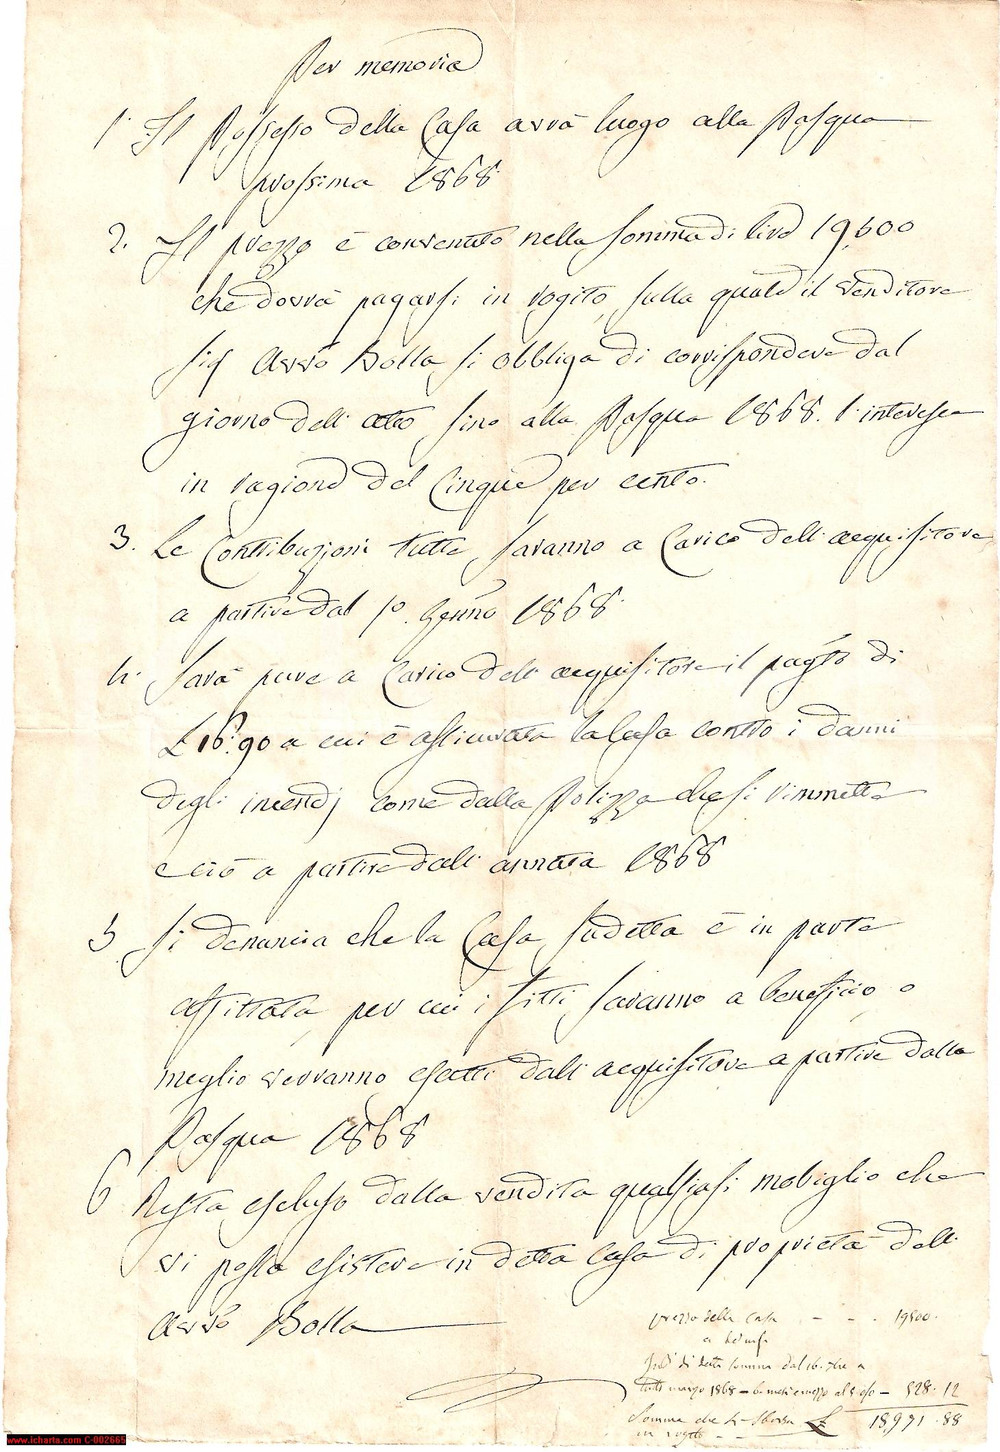 Per memoria
1. Il Possesso della Casa avrà luogo alla Pasqua
prossima 1868
2. Il prezzo è convenuto nella somma di lire 19,500
che dovrà pagarsi in rogito, sulla quale il Venditore
Sig Avvo Bolla si obbliga di corrispondere dal
giorno dell' atto sino alla Pasqua 1868. l' interesse
in ragione del Cinque per cento.
3. Le Contribuzioni tutte saranno a Carico dell' acquisitore
a partire dal 1o. Genno 1868.
4. Sarà pure a Carico dell' acquisitore il pagto di
£ 16. 90 a cui è assicurata la Casa contro i danni
degli incendj come dalla Polizza che si rimmette
e ciò a partire dall' annata 1868
5 Si denuncia che la Casa sudetta è in parte
affittata, per cui i fitti saranno a beneficio, o
meglio verranno esatti dall' acquisitore a partire dalla
Pasqua 1868
6 Resta escluso dalla vendita qualsiasi mobiglio che
vi possa esistere in detta Casa di proprietà dell'
Avvo Bolla
prezzo della Casa - - . 19500.
di detta somma dal 16. 7bre a
tutto marzo 1868 - 6. mesi e mezzo al 5. o/o - 528. 12
Somma che si sborsa £ 18,971. 88
in rogito - -
www.icharta.com C-002665